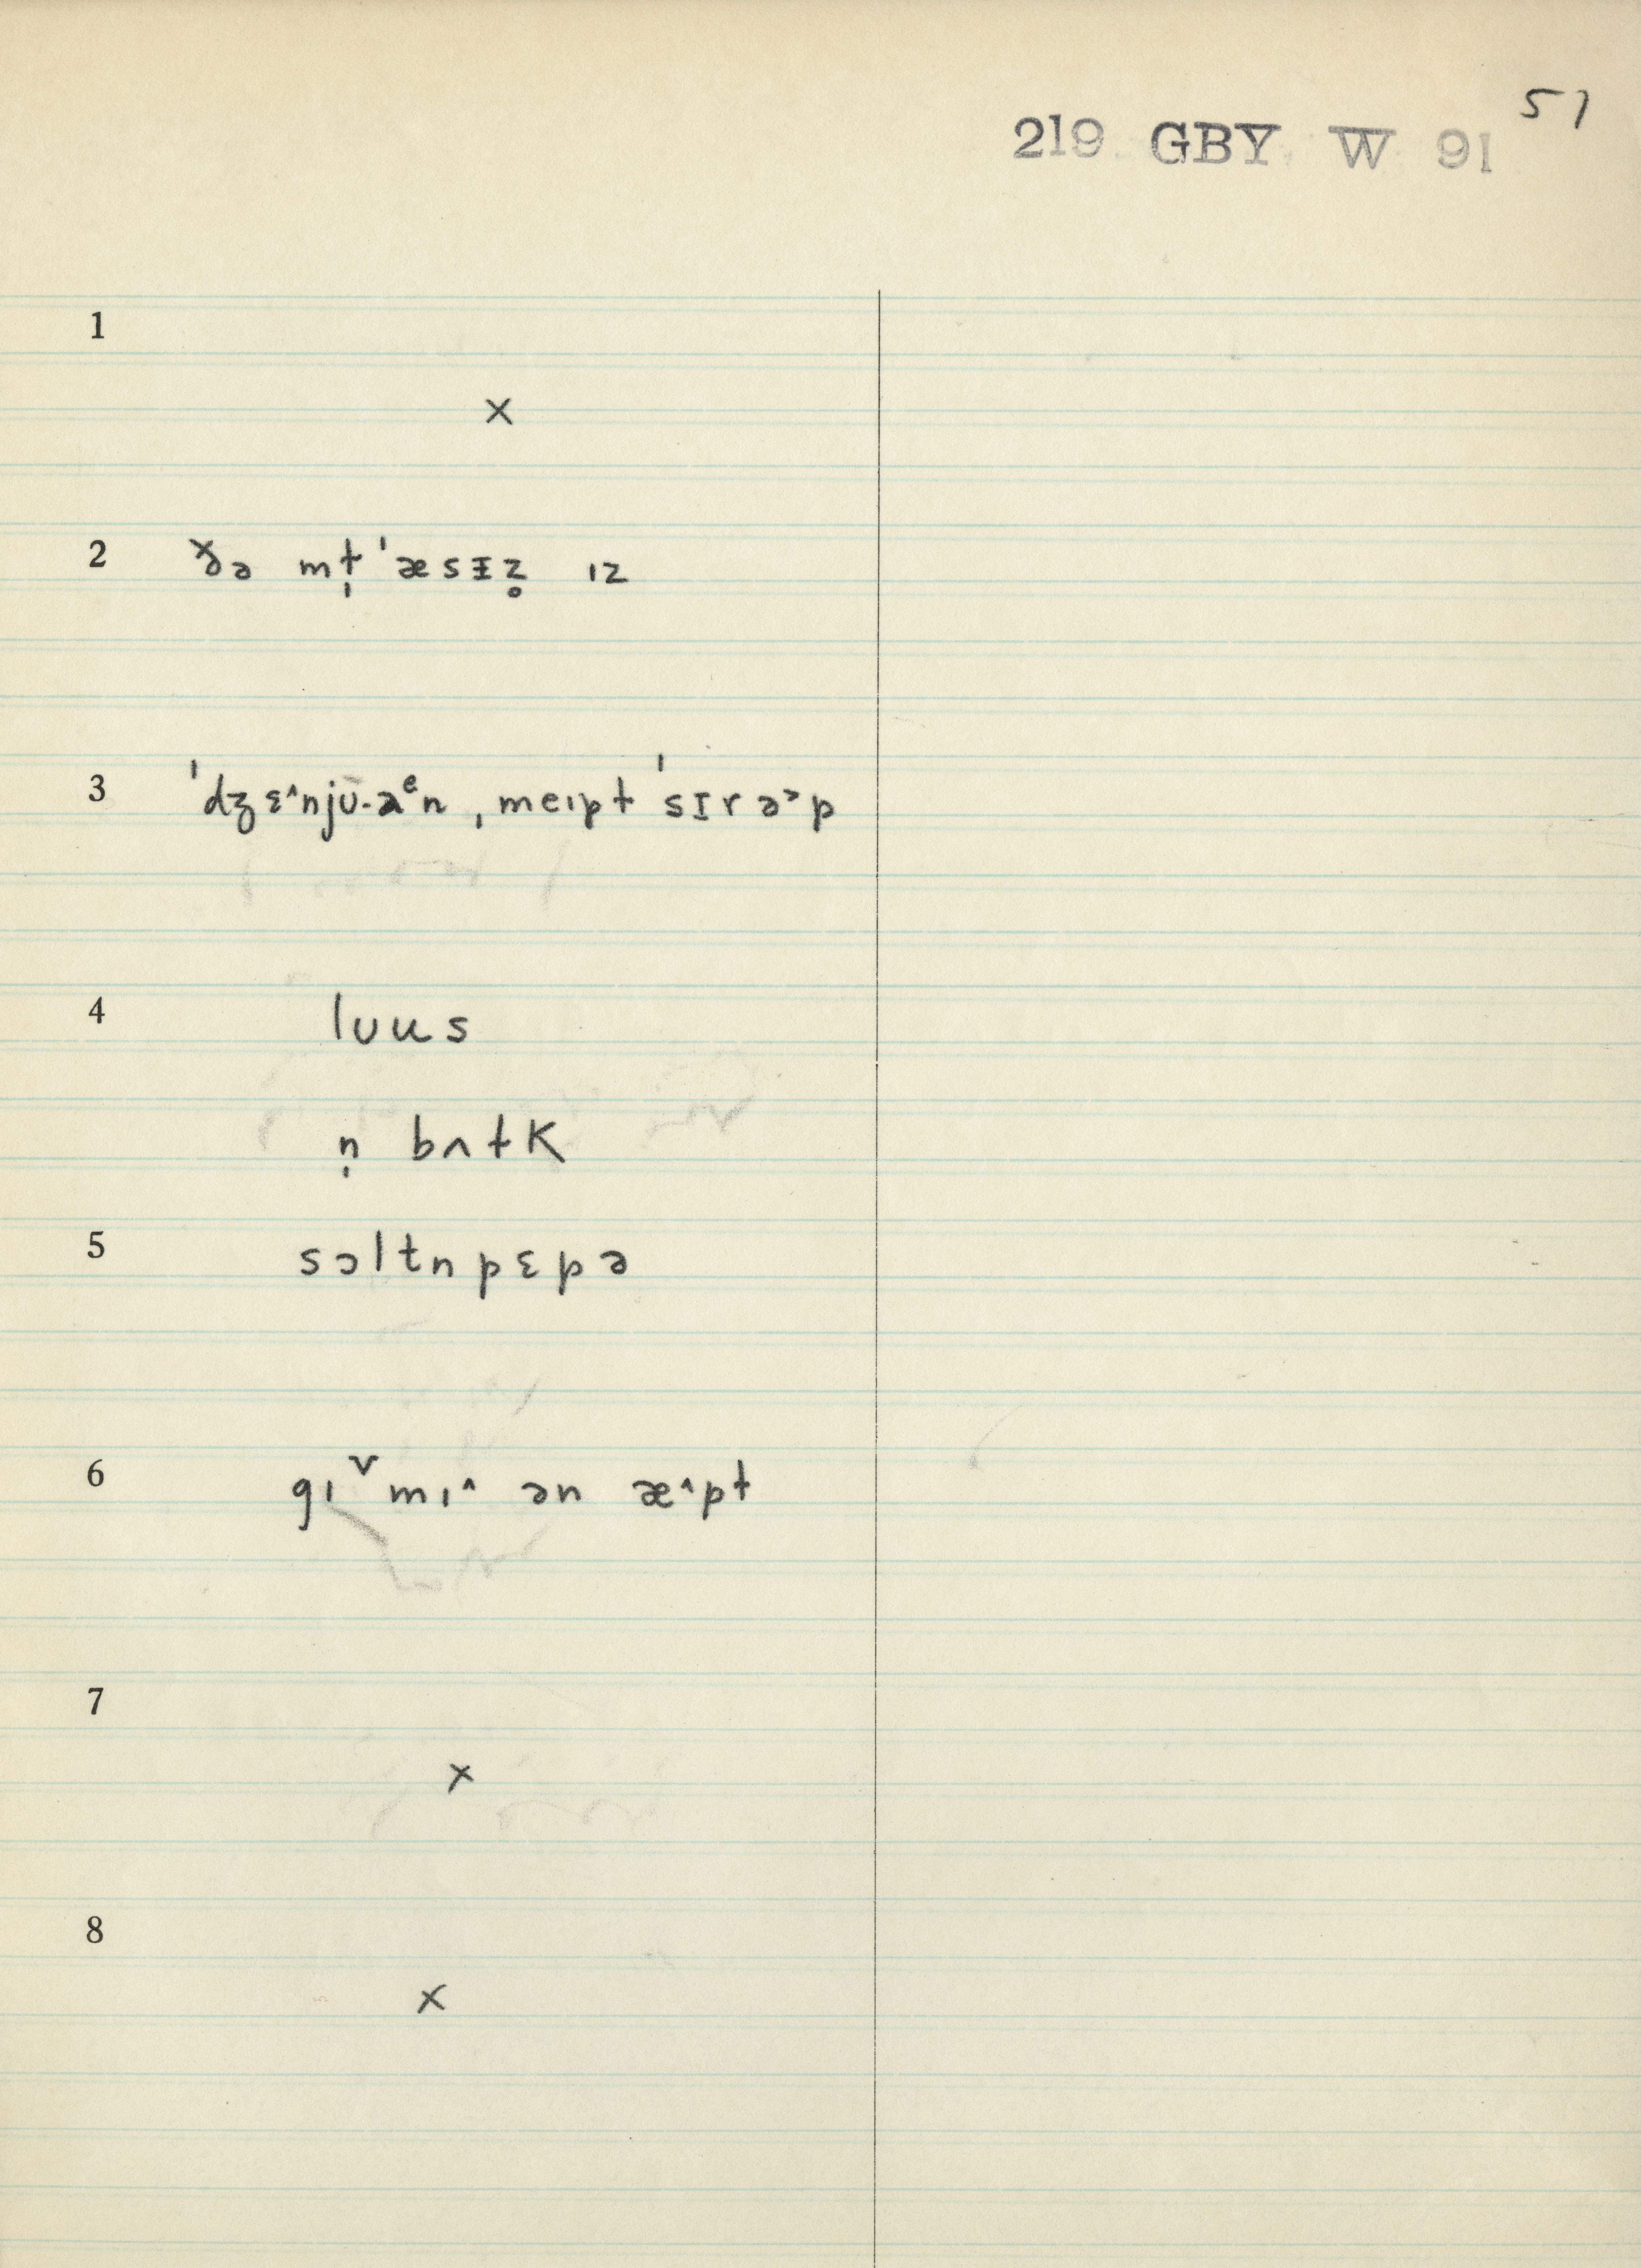 51
219 GBY W 91
1
×
2 ðə mt̩ ˈæsɪ̵z̥ ɪz
3 ˈdʒɛ^njʊ̄-aᵉn, meɪpt ˈsɪrə˃p
4 lʊus
n̩ bʌtK
5 sɔltn pɛpə
6 gɪˇmɪ^ ən æ^pt
7
×
8
×